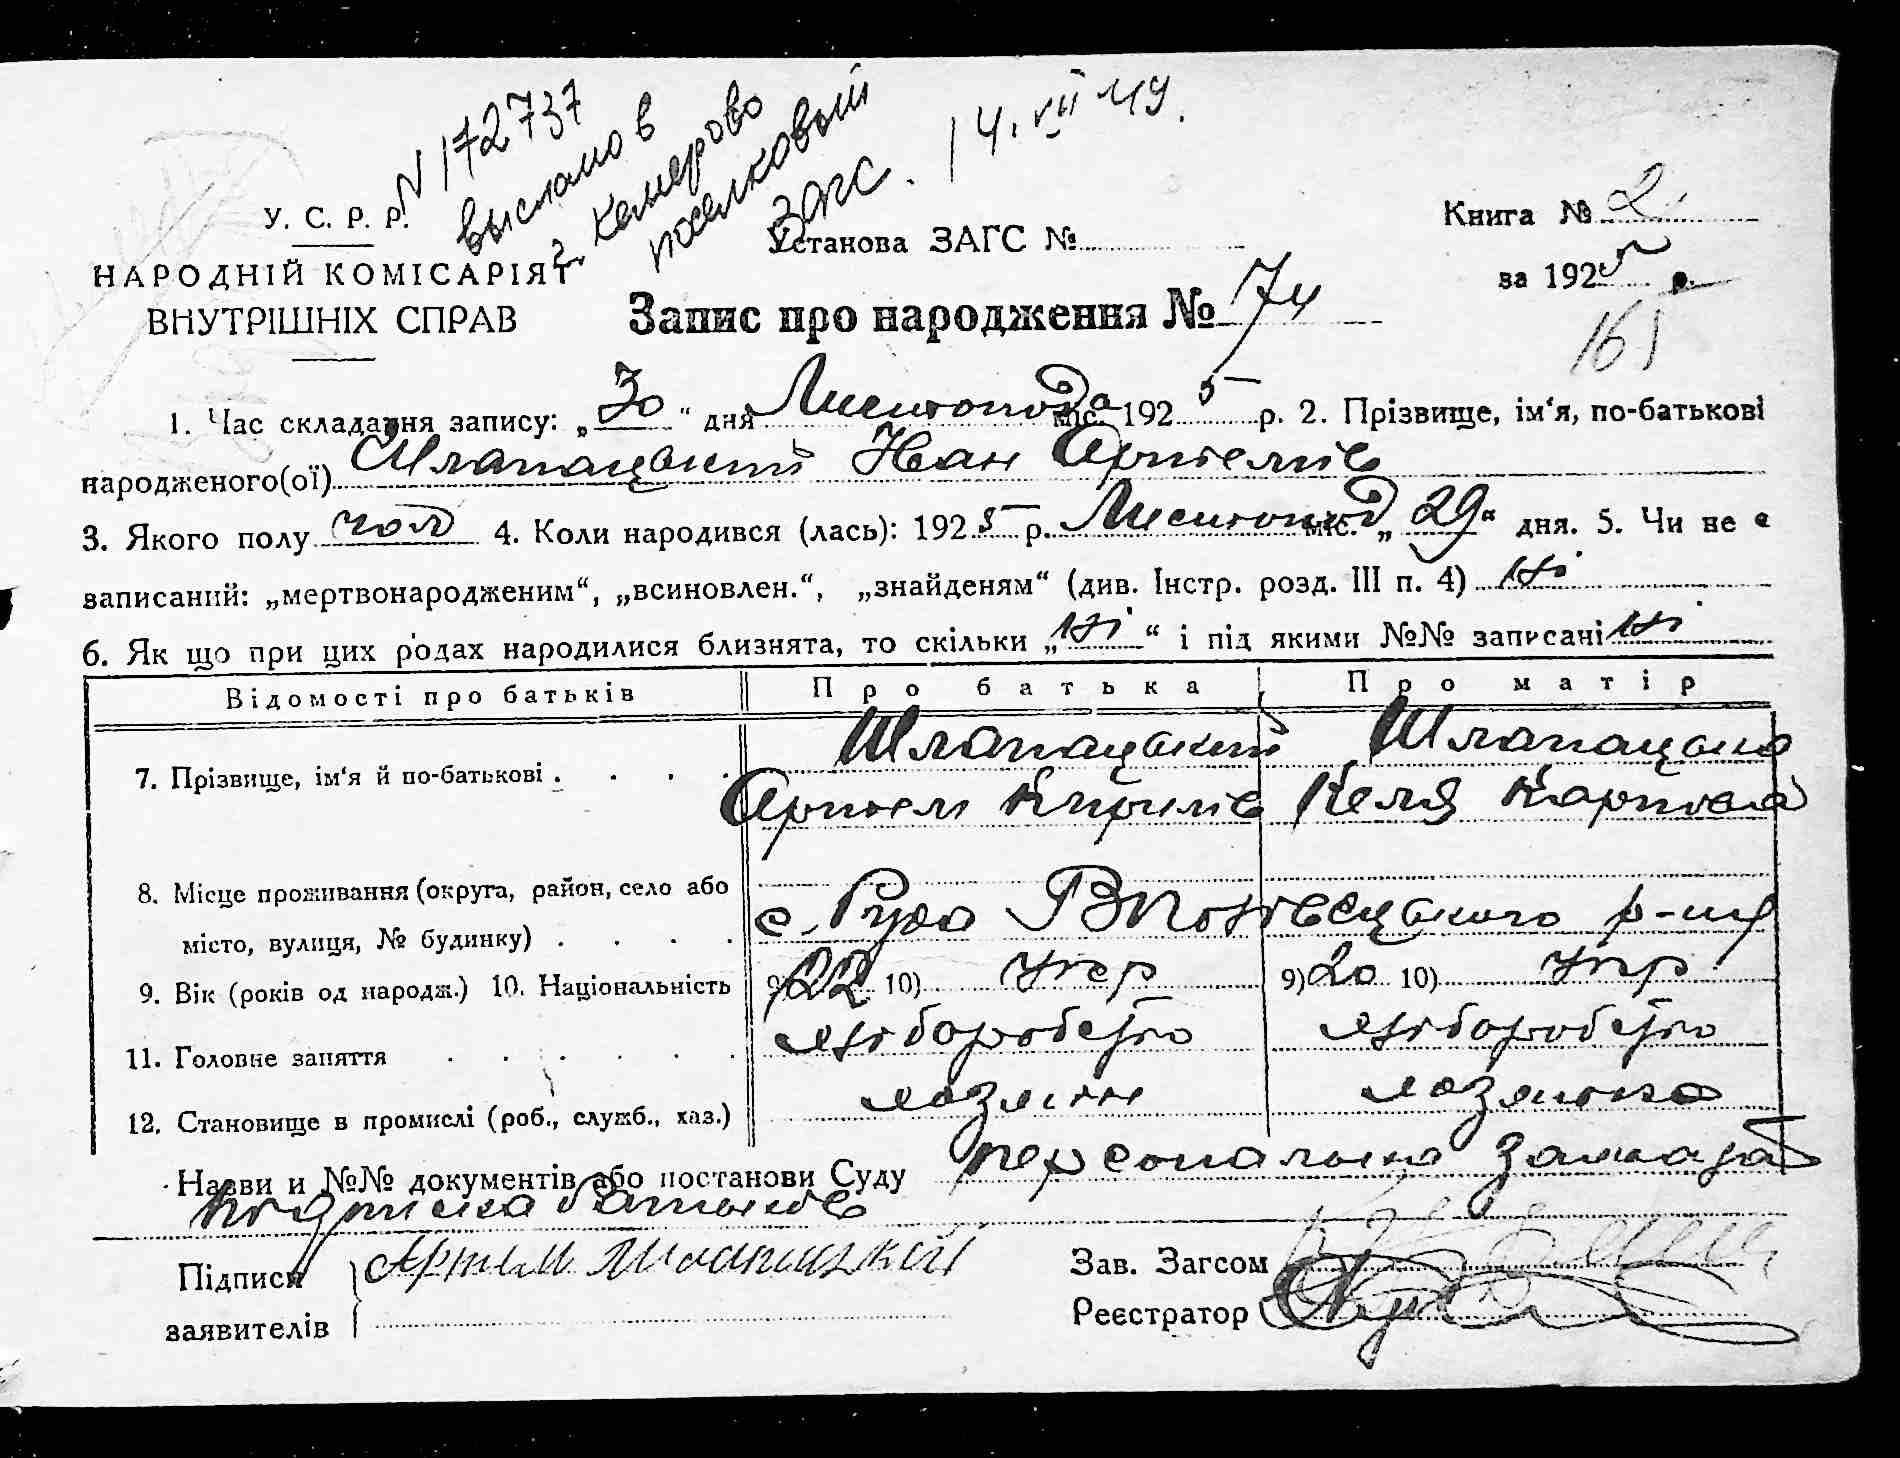 N 172737
выслано в
г. Кемерово
поселковый
ЗАГС. 14.VII 49.
У. С. Р. Р.
НАРОДНІЙ КОМІСАРІЯТ
ВНУТРІШНІХ СПРАВ
Установа ЗАГС №
Книга № 2
за 1925 р.
165
Запис про народження № 74
1. Час складання запису: „30" дня Листопода міс. 1925 р. 2. Прізвище, ім'я, по-батькові
народженого(ої) Шлапацький Іван Артемів
3. Якого полу чол 4. Коли народився (лась): 1925 р. Листопод міс. „29" дня. 5. Чи не є
записаний: „мертвонародженим", „всиновлен.", „знайденям" (див. Інстр. розд. III п. 4) Ні
6. Як що при цих родах народилися близнята, то скільки „Ні" і під якими №№ записані Ні
Відомості про батьків Про батька Про матір
7. Прізвище, ім'я й по-батькові . . . . Шлапацький Шлапацька
Артем Кирилів Келя Карпова
8. Місце проживання (округа, район, село або
місто, вулиця, № будинку) . . . . с. Руда р-ну
9. Вік (років од народж.) 10. Національність 9) 22 10) Укр 9) 20 10) Укр
11. Головне заняття . . . . . . хліборобство хліборобство
12. Становище в промислі (роб., служб., хаз.) хазяїн хазяйка
Назви и №№ документів або постанови Суду персональна заява та
підписка батьків
Підписи Артем Шлапацький
заявителів
Зав. Загсом
Реєстратор